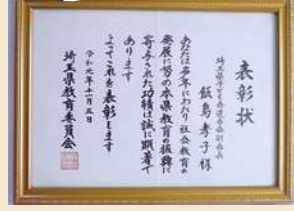 表彰状
埼玉県子ども会連合会副会長
飯島孝子様
あなたは多年にわたり社会教育の
発展に努め本県教育の振興に
寄与された功績は誠に顕著で
あります
よってこれを表彰します
令和元年十一月三日
埼玉県教育委員会